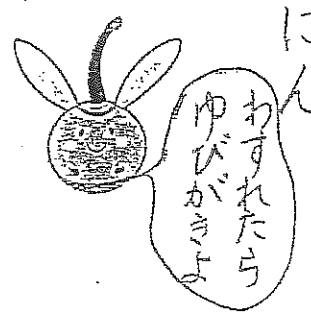 にん
わすれたら
ゆびがきよ